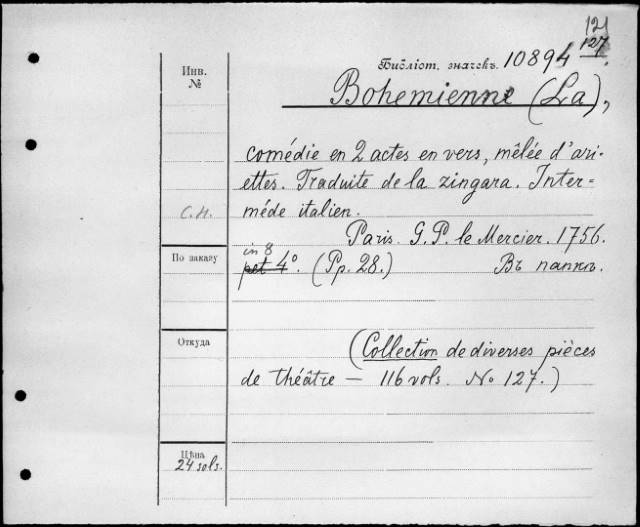 121
127.
Библіот. значекъ. 10894
Инв.
№
Bohemienne (La),
comédie en 2 actes en vers, mêlée d'ari-
ettes. Traduite de la zingara. Inter-
méde italien.
С.П.
Paris. G. P. le Mercier. 1756.
in 8
По заказу
pet 4°. (Pp. 28.) Въ папкѣ.
Откуда
(Collection de diverses pièces
de théâtre — 116 vols. No 127.)
Цѣна
24 sols.